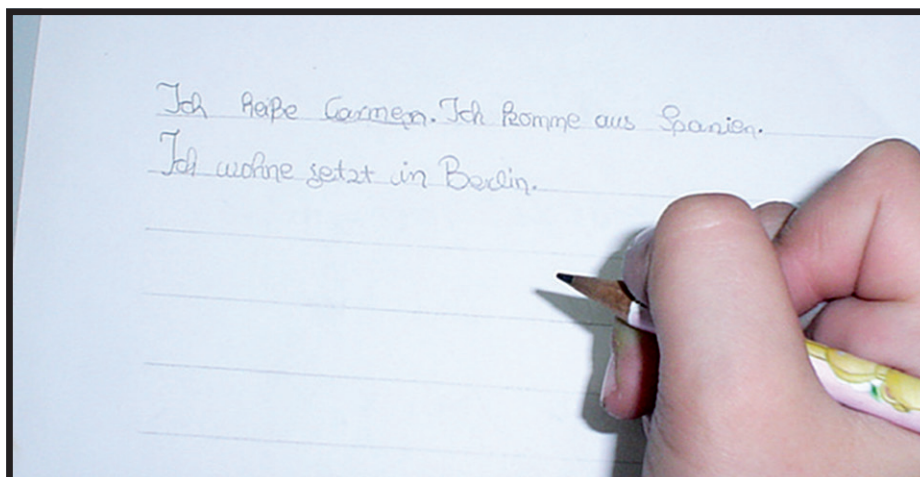 Ich heiße Carmen. Ich komme aus Spanien.
Ich wohne jetzt in Berlin.